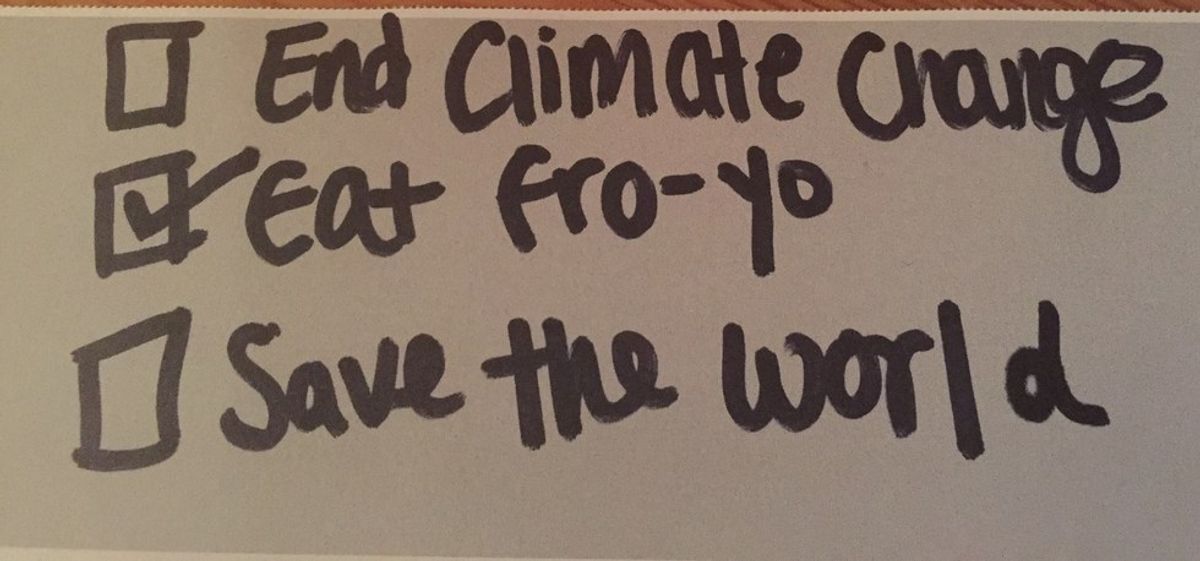 ☐ End Climate Change
☑ Eat fro-yo
☐ Save the world